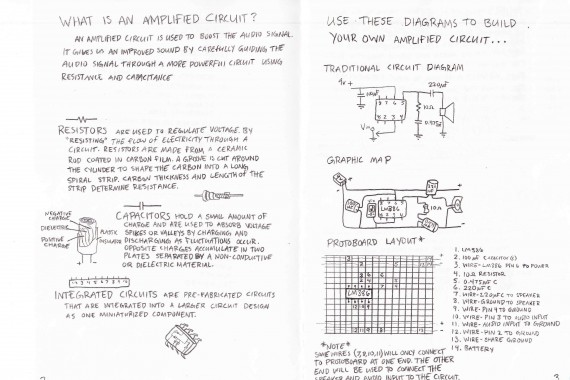 WHAT IS AN AMPLIFIED CIRCUIT?
AN AMPLIFIED CIRCUIT IS USED TO BOOST THE AUDIO SIGNAL.
IT GIVES US AN IMPROVED SOUND BY CAREFULLY GUIDING THE
AUDIO SIGNAL THROUGH A MORE POWERFUL CIRCUIT USING
RESISTANCE AND CAPACITANCE
RESISTORS ARE USED TO REGULATE VOLTAGE. BY
"RESISTING" THE FLOW OF ELECTRICITY THROUGH A
CIRCUIT. RESISTORS ARE MADE FROM A CERAMIC
ROD COATED IN CARBON FILM. A GROOVE IS CUT AROUND
THE CYLINDER TO SHAPE THE CARBON INTO A LONG
SPIRAL STRIP, CARBON THICKNESS AND LENGTH OF THE
STRIP DETERMINE RESISTANCE.
NEGATIVE CHARGE
DIELECTRIC
POSITIVE CHARGE
PLASTIC INSULATOR
CAPACITORS HOLD A SMALL AMOUNT OF
CHARGE AND ARE USED TO ABSORB VOLTAGE
SPIKES OR VALLEYS BY CHARGING AND
DISCHARGING AS FLUCTUATIONS OCCUR.
OPPOSITE CHARGES ACCUMULATE IN TWO
PLATES SEPARATED BY A NON-CONDUCTIVE
OR DIELECTRIC MATERIAL.
INTEGRATED CIRCUITS ARE PRE-FABRICATED CIRCUITS
THAT ARE INTEGRATED INTO A LARGER CIRCUIT DESIGN
AS ONE MINIATURIZED COMPONENT.
USE THESE DIAGRAMS TO BUILD
YOUR OWN AMPLIFIED CIRCUIT...
TRADITIONAL CIRCUIT DIAGRAM
220µF
10Ω
GRAPHIC MAP
LM386
10Ω
PROTOBOARD LAYOUT*
LM386
1. LM386
3. WIRE-LM386 PIN 6 TO POWER
4. 10Ω RESISTOR
7. WIRE-220µF TO SPEAKER
8. WIRE-GROUND TO SPEAKER
9. WIRE-PIN 4 TO GROUND
10. WIRE-PIN 3 TO AUDIO INPUT
11. WIRE-AUDIO INPUT TO GROUND
12. WIRE-PIN 2 TO GROUND
13. WIRE-SHARE GROUND
14. BATTERY
*NOTE*
SOME WIRES (7,8,10,11) WILL ONLY CONNECT
TO PROTOBOARD AT ONE END. THE OTHER
END WILL BE USED TO CONNECT THE
SPEAKER AND AUDIO INPUT TO THE CIRCUIT.
3